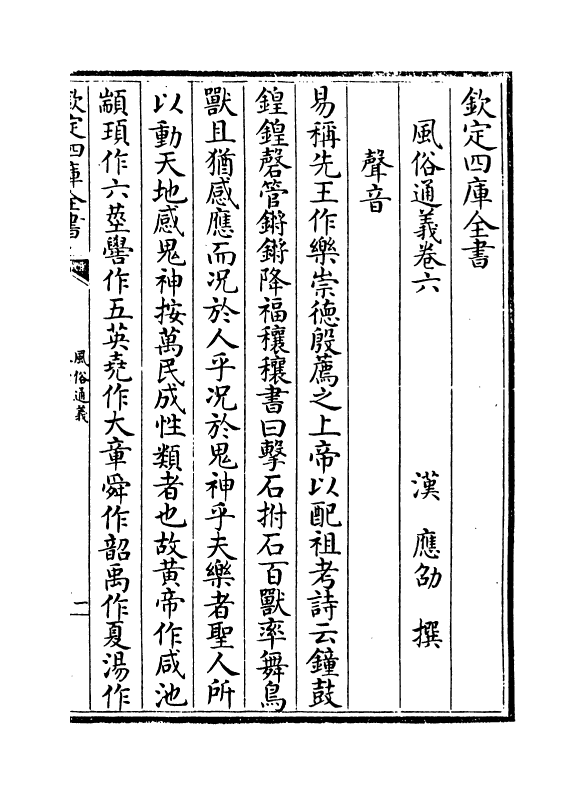 欽定四庫全書
風俗通義卷六
漢 應劭 撰
聲音
易稱先王作樂崇德殷薦之上帝以配祖考詩云鐘鼓
鍠鍠磬管鏘鏘降福穰穰書曰擊石拊石百獸率舞鳥
獸且猶感應而況於人乎況於鬼神乎夫樂者聖人所
以動天地感鬼神按萬民成性類者也故黃帝作咸池
顓頊作六莖嚳作五英堯作大章舜作韶禹作夏湯作
欽定四庫全書
風俗通義